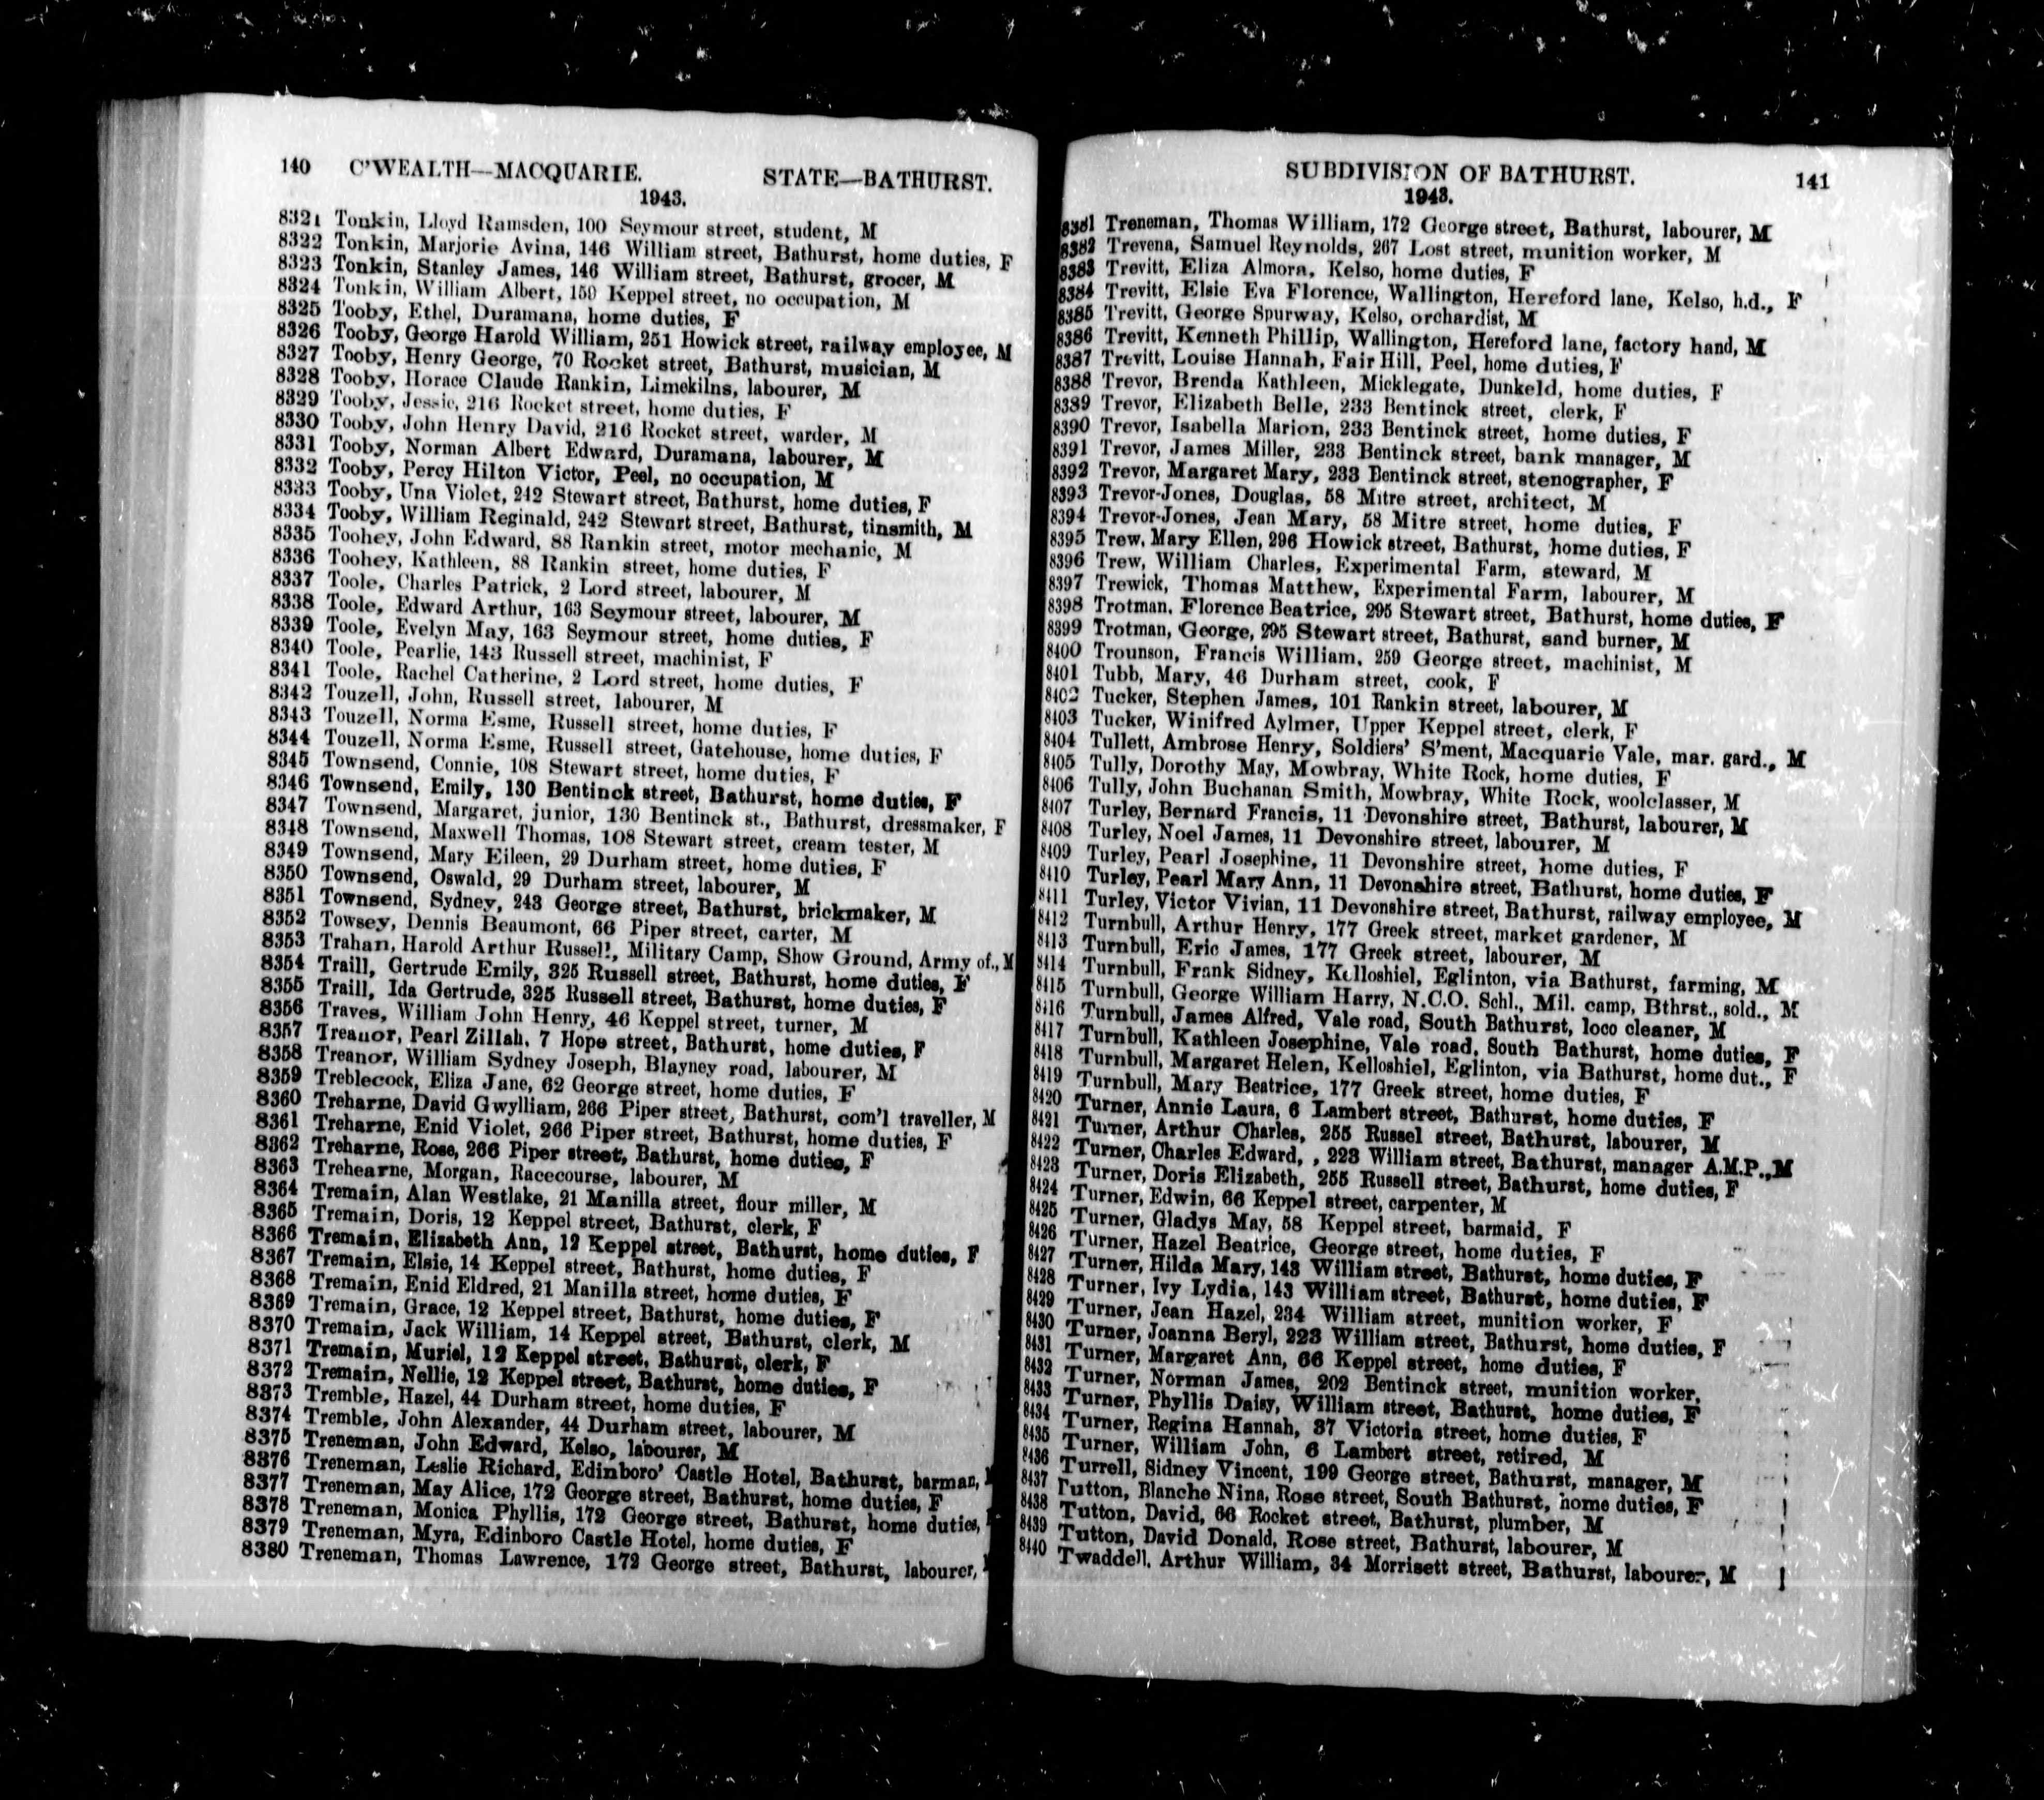 140 C'WEALTH—MACQUARIE. STATE—BATHURST.
1943.
8321 Tonkin, Lloyd Ramsden, 100 Seymour street, student, M
8322 Tonkin, Marjorie Avina, 146 William street, Bathurst, home duties, F
8323 Tonkin, Stanley James, 146 William street, Bathurst, grocer, M
8324 Tonkin, William Albert, 159 Keppel street, no occupation, M
8325 Tooby, Ethel, Duramana, home duties, F
8326 Tooby, George Harold William, 251 Howick street, railway employee, M
8327 Tooby, Henry George, 70 Rocket street, Bathurst, musician, M
8328 Tooby, Horace Claude Rankin, Limekilns, labourer, M
8329 Tooby, Jessie, 216 Rocket street, home duties, F
8330 Tooby, John Henry David, 216 Rocket street, warder, M
8331 Tooby, Norman Albert Edward, Duramana, labourer, M
8332 Tooby, Percy Hilton Victor, Peel, no occupation, M
8333 Tooby, Una Violet, 242 Stewart street, Bathurst, home duties, F
8334 Tooby, William Reginald, 242 Stewart street, Bathurst, tinsmith, M
8335 Toohey, John Edward, 88 Rankin street, motor mechanic, M
8336 Toohey, Kathleen, 88 Rankin street, home duties, F
8337 Toole, Charles Patrick, 2 Lord street, labourer, M
8338 Toole, Edward Arthur, 163 Seymour street, labourer, M
8339 Toole, Evelyn May, 163 Seymour street, home duties, F
8340 Toole, Pearlie, 143 Russell street, machinist, F
8341 Toole, Rachel Catherine, 2 Lord street, home duties, F
8342 Touzell, John, Russell street, labourer, M
8343 Touzell, Norma Esme, Russell street, home duties, F
8344 Touzell, Norma Esme, Russell street, Gatehouse, home duties, F
8345 Townsend, Connie, 108 Stewart street, home duties, F
8346 Townsend, Emily, 130 Bentinck street, Bathurst, home duties, F
8347 Townsend, Margaret, junior, 130 Bentinck st., Bathurst, dressmaker, F
8348 Townsend, Maxwell Thomas, 108 Stewart street, cream tester, M
8349 Townsend, Mary Eileen, 29 Durham street, home duties, F
8350 Townsend, Oswald, 29 Durham street, labourer, M
8351 Townsend, Sydney, 243 George street, Bathurst, brickmaker, M
8352 Towsey, Dennis Beaumont, 66 Piper street, carter, M
8353 Trahan, Harold Arthur Russell, Military Camp, Show Ground, Army of., M
8354 Traill, Gertrude Emily, 325 Russell street, Bathurst, home duties, F
8355 Traill, Ida Gertrude, 325 Russell street, Bathurst, home duties, F
8356 Traves, William John Henry, 46 Keppel street, turner, M
8357 Treanor, Pearl Zillah, 7 Hope street, Bathurst, home duties, F
8358 Treanor, William Sydney Joseph, Blayney road, labourer, M
8359 Treblecock, Eliza Jane, 62 George street, home duties, F
8360 Treharne, David Gwylliam, 266 Piper street, Bathurst, com'l traveller, M
8361 Treharne, Enid Violet, 266 Piper street, Bathurst, home duties, F
8362 Treharne, Rose, 266 Piper street, Bathurst, home duties, F
8363 Trehearne, Morgan, Racecourse, labourer, M
8364 Tremain, Alan Westlake, 21 Manilla street, flour miller, M
8365 Tremain, Doris, 12 Keppel street, Bathurst, clerk, F
8366 Tremain, Elizabeth Ann, 12 Keppel street, Bathurst, home duties, F
8367 Tremain, Elsie, 14 Keppel street, Bathurst, home duties, F
8368 Tremain, Enid Eldred, 21 Manilla street, home duties, F
8369 Tremain, Grace, 12 Keppel street, Bathurst, home duties, F
8370 Tremain, Jack William, 14 Keppel street, Bathurst, clerk, M
8371 Tremain, Muriel, 12 Keppel street, Bathurst, clerk, F
8372 Tremain, Nellie, 12 Keppel street, Bathurst, home duties, F
8373 Tremble, Hazel, 44 Durham street, home duties, F
8374 Tremble, John Alexander, 44 Durham street, labourer, M
8375 Treneman, John Edward, Kelso, labourer, M
8376 Treneman, Leslie Richard, Edinboro' Castle Hotel, Bathurst, barman,
8377 Treneman, May Alice, 172 George street, Bathurst, home duties, F
8378 Treneman, Monica Phyllis, 172 George street, Bathurst, home duties,
8379 Treneman, Myra, Edinboro Castle Hotel, home duties, F
8380 Treneman, Thomas Lawrence, 172 George street, Bathurst, labourer,
SUBDIVISION OF BATHURST. 141
1943.
8381 Treneman, Thomas William, 172 George street, Bathurst, labourer, M
8382 Trevena, Samuel Reynolds, 267 Lost street, munition worker, M
8383 Trevitt, Eliza Almora, Kelso, home duties, F
8384 Trevitt, Elsie Eva Florence, Wallington, Hereford lane, Kelso, h.d., F
8385 Trevitt, George Spurway, Kelso, orchardist, M
8386 Trevitt, Kenneth Phillip, Wallington, Hereford lane, factory hand, M
8387 Trevitt, Louise Hannah, Fair Hill, Peel, home duties, F
8388 Trevor, Brenda Kathleen, Micklegate, Dunkeld, home duties, F
8389 Trevor, Elizabeth Belle, 233 Bentinck street, clerk, F
8390 Trevor, Isabella Marion, 233 Bentinck street, home duties, F
8391 Trevor, James Miller, 233 Bentinck street, bank manager, M
8392 Trevor, Margaret Mary, 233 Bentinck street, stenographer, F
8393 Trevor-Jones, Douglas, 58 Mitre street, architect, M
8394 Trevor-Jones, Jean Mary, 58 Mitre street, home duties, F
8395 Trew, Mary Ellen, 296 Howick street, Bathurst, home duties, F
8396 Trew, William Charles, Experimental Farm, steward, M
8397 Trewick, Thomas Matthew, Experimental Farm, labourer, M
8398 Trotman, Florence Beatrice, 295 Stewart street, Bathurst, home duties, F
8399 Trotman, George, 295 Stewart street, Bathurst, sand burner, M
8400 Trounson, Francis William, 259 George street, machinist, M
8401 Tubb, Mary, 46 Durham street, cook, F
8402 Tucker, Stephen James, 101 Rankin street, labourer, M
8403 Tucker, Winifred Aylmer, Upper Keppel street, clerk, F
8404 Tullett, Ambrose Henry, Soldiers' S'ment, Macquarie Vale, mar. gard., M
8405 Tully, Dorothy May, Mowbray, White Rock, home duties, F
8406 Tully, John Buchanan Smith, Mowbray, White Rock, woolclasser, M
8407 Turley, Bernard Francis, 11 Devonshire street, Bathurst, labourer, M
8408 Turley, Noel James, 11 Devonshire street, labourer, M
8409 Turley, Pearl Josephine, 11 Devonshire street, home duties, F
8410 Turley, Pearl Mary Ann, 11 Devonshire street, Bathurst, home duties, F
8411 Turley, Victor Vivian, 11 Devonshire street, Bathurst, railway employee, M
8412 Turnbull, Arthur Henry, 177 Greek street, market gardener, M
8413 Turnbull, Eric James, 177 Greek street, labourer, M
8414 Turnbull, Frank Sidney, Kelloshiel, Eglinton, via Bathurst, farming, M
8415 Turnbull, George William Harry, N.C.O. Schl., Mil. camp, Bthrst., sold., M
8416 Turnbull, James Alfred, Vale road, South Bathurst, loco cleaner, M
8417 Turnbull, Kathleen Josephine, Vale road, South Bathurst, home duties, F
8418 Turnbull, Margaret Helen, Kelloshiel, Eglinton, via Bathurst, home dut., F
8419 Turnbull, Mary Beatrice, 177 Greek street, home duties, F
8420 Turner, Annie Laura, 6 Lambert street, Bathurst, home duties, F
8421 Turner, Arthur Charles, 255 Russel street, Bathurst, labourer, M
8422 Turner, Charles Edward, , 223 William street, Bathurst, manager A.M.P., M
8423 Turner, Doris Elizabeth, 255 Russell street, Bathurst, home duties, F
8424 Turner, Edwin, 66 Keppel street, carpenter, M
8425 Turner, Gladys May, 58 Keppel street, barmaid, F
8426 Turner, Hazel Beatrice, George street, home duties, F
8427 Turner, Hilda Mary, 143 William street, Bathurst, home duties, F
8428 Turner, Ivy Lydia, 143 William street, Bathurst, home duties, F
8429 Turner, Jean Hazel, 234 William street, munition worker, F
8430 Turner, Joanna Beryl, 223 William street, Bathurst, home duties, F
8431 Turner, Margaret Ann, 66 Keppel street, home duties, F
8432 Turner, Norman James, 202 Bentinck street, munition worker,
8433 Turner, Phyllis Daisy, William street, Bathurst, home duties, F
8434 Turner, Regina Hannah, 37 Victoria street, home duties, F
8435 Turner, William John, 6 Lambert street, retired, M
8436 Turrell, Sidney Vincent, 199 George street, Bathurst, manager, M
8437 Tutton, Blanche Nina, Rose street, South Bathurst, home duties, F
8438 Tutton, David, 66 Rocket street, Bathurst, plumber, M
8439 Tutton, David Donald, Rose street, Bathurst, labourer, M
8440 Twaddell, Arthur William, 34 Morrisett street, Bathurst, labourer, M